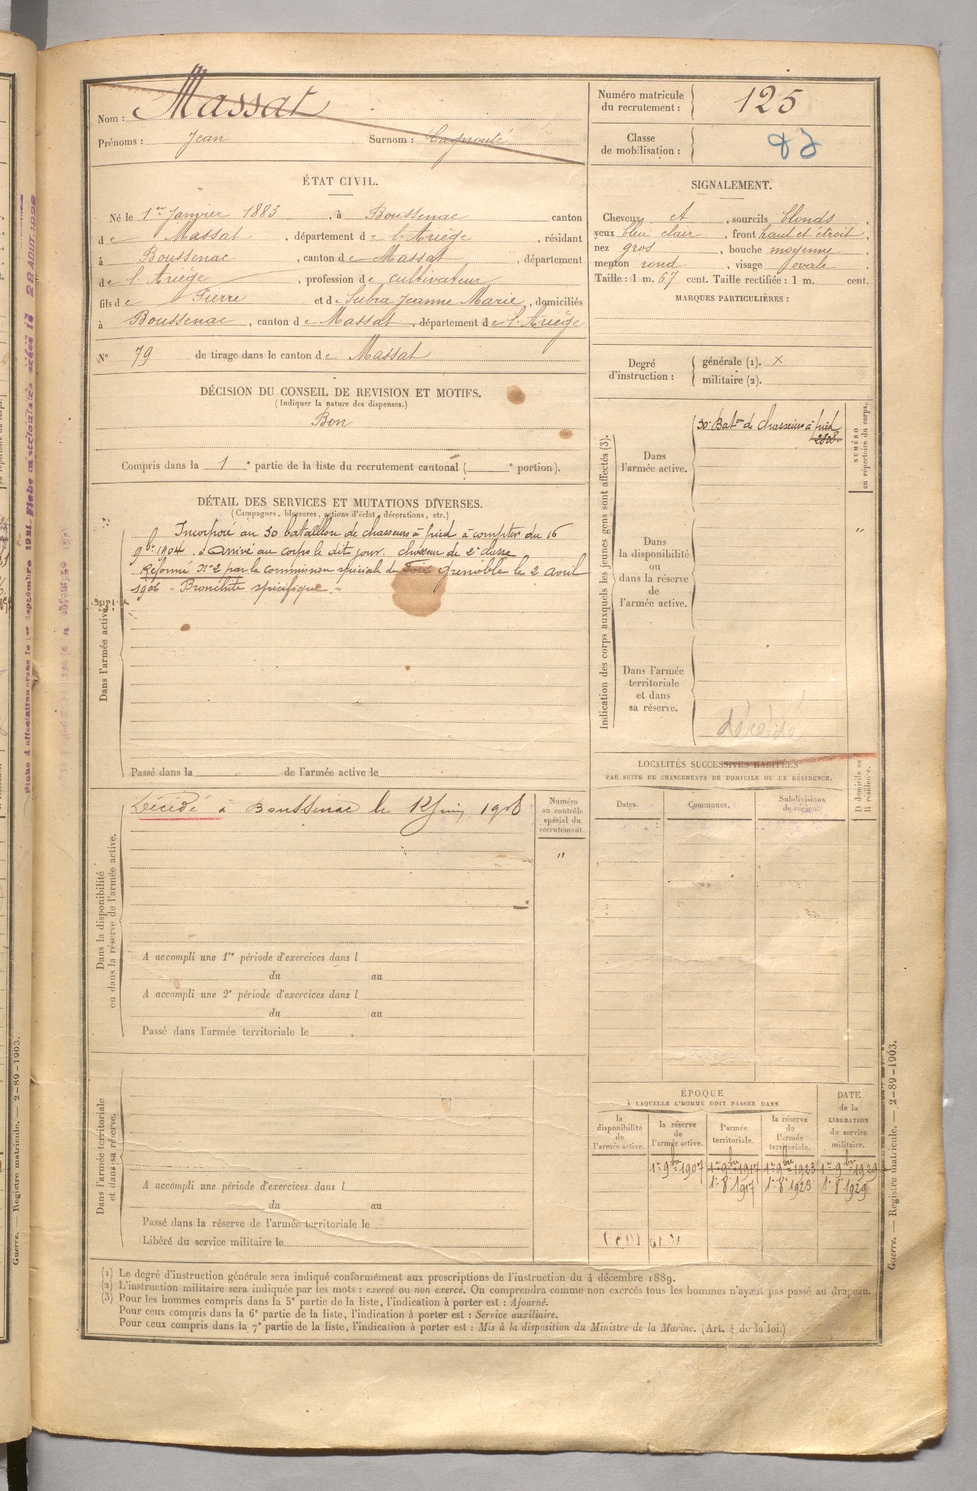 Nom : Massat
Prénoms : Jean Surnom :
Numéro matricule du recrutement : 125
Classe de mobilisation :
ÉTAT CIVIL.
Né le 1er Janvier 1883, à Boussenac canton
de Massat, département de l'Ariège, résidant
à Boussenac, canton de Massat, département
de l'Ariège, profession de cultivateur
fils de Pierre et de Subra Jeanne Marie, domiciliés
à Boussenac, canton de Massat, département de l'Ariège
N° 79 de tirage dans le canton de Massat
SIGNALEMENT.
Cheveux et, sourcils blonds,
yeux bleu clair, front haut et étroit,
nez gros, bouche moyenne,
menton rond, visage ovale
Taille : 1 m. 67 cent. Taille rectifiée : 1 m. cent.
MARQUES PARTICULIÈRES :
Degré d'instruction : générale (1). x
militaire (2).
DÉCISION DU CONSEIL DE REVISION ET MOTIFS.
(Indiquer la nature des dispenses.)
Bon
Compris dans la 1e partie de la liste du recrutement cantonal ( e portion).
DÉTAIL DES SERVICES ET MUTATIONS DIVERSES.
(Campagnes, blessures, actions d'éclat, décorations, etc.)
Dans l'armée active.
Incorporé au 30 bataillon de chasseurs à pied à compter du 16
9bre 1904. Arrivé au corps le dit jour. chasseur de 2e classe
Réformé N°2 par la commission spéciale de Grenoble le 2 avril
1906 - Bronchite spécifique. -
Passé dans la de l'armée active le
Indication des corps auxquels les jeunes gens sont affectés (3).
NUMÉRO au répertoire du corps.
Dans l'armée active.
30e Baton de chasseurs à pied
Dans la disponibilité ou dans la réserve de l'armée active.
"
Dans l'armée territoriale et dans sa réserve.
décédé
LOCALITÉS SUCCESSIVES HABITÉES
PAR SUITE DE CHANGEMENTS DE DOMICILE OU DE RÉSIDENCE.
Dates. Communes. Subdivisions de région.
D domicile ou R résidence.
Dans la disponibilité ou dans la réserve de l'armée active.
Décédé à Boussenac le 12 Juin 1906
Numéro au contrôle spécial du recrutement.
"
A accompli une 1re période d'exercices dans l
du au
A accompli une 2e période d'exercices dans l
du au
Passé dans l'armée territoriale le
Dans l'armée territoriale et dans sa réserve.
A accompli une période d'exercices dans l
du au
Passé dans la réserve de l'armée territoriale le
Libéré du service militaire le
ÉPOQUE
À LAQUELLE L'HOMME DOIT PASSER DANS
la disponibilité de l'armée active.
la réserve de l'armée active.
l'armée territoriale.
la réserve de l'armée territoriale.
DATE de la LIBÉRATION du service militaire.
1er 9bre 1907 1er 9bre 1917 1er 9bre 1923 1er 9bre 1929
1er 8 1917 1er 8 1923 1er 8 1929
(1) Le degré d'instruction générale sera indiqué conformément aux prescriptions de l'instruction du 4 décembre 1889.
(2) L'instruction militaire sera indiquée par les mots : exercé ou non exercé. On comprendra comme non exercés tous les hommes n'ayant pas passé au drapeau.
(3) Pour les hommes compris dans la 5e partie de la liste, l'indication à porter est : Ajourné.
Pour ceux compris dans la 6e partie de la liste, l'indication à porter est : Service auxiliaire.
Pour ceux compris dans la 7e partie de la liste, l'indication à porter est : Mis à la disposition du Ministre de la Marine. (Art. 4 de la loi.)
Guerre. — Registre matricule. — 2-89-1903.
Guerre. — Registre matricule. — 2-89-1903.